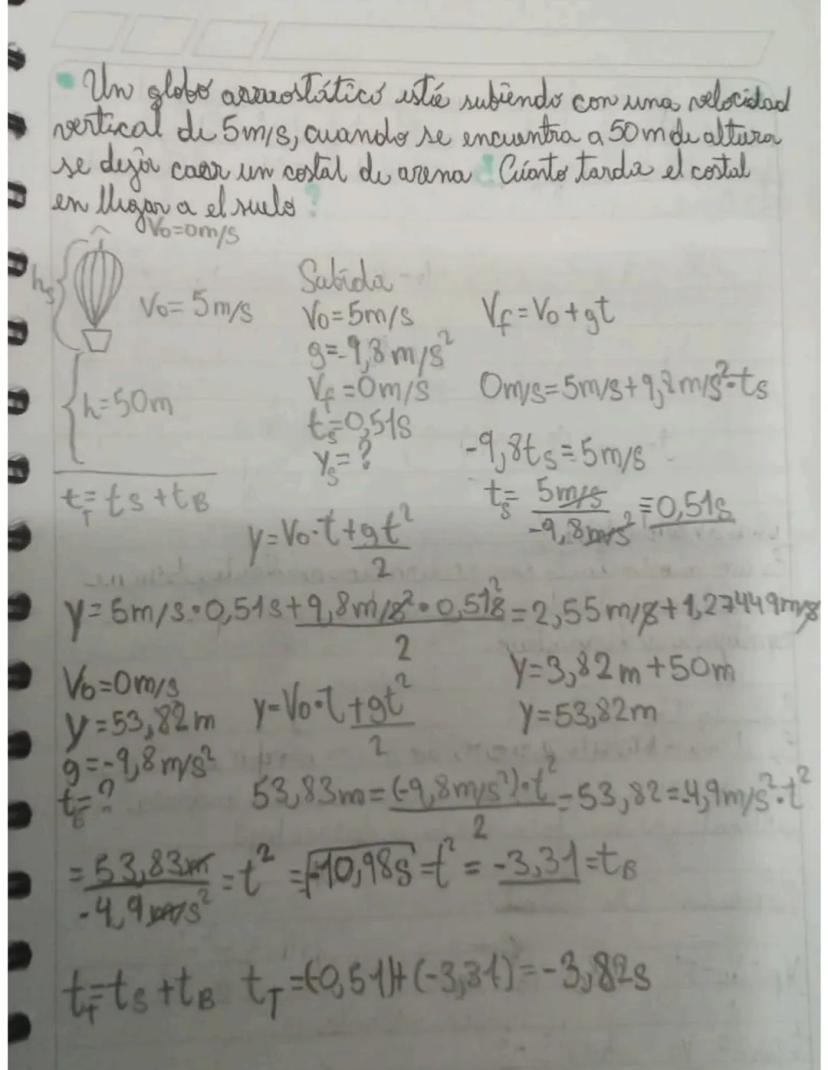 • Un globo areostático esté subiendo con una velocidad
vertical de 5m/s, cuando se encuentra a 50m de altura
se deja caer un costal de arena ¿Cúanto tarda el costal
en llegar a el suelo?
V₀=0m/s
hₛ
V₀= 5m/s
h=50m
t_T= tₛ + t_B
Subida
V₀=5m/s
g=-9,8m/s²
V_f=0m/s
tₛ=0,51s
Yₛ=?
V_f=V₀+gt
0m/s=5m/s+9,8m/s²·tₛ
-9,8tₛ=5m/s
tₛ= 5m/s / -9,8m/s² = 0,51s
y=V₀·t+gt²/2
y=5m/s·0,51s+9,8m/s²·0,51s²/2=2,55m/s+1,27449m/s
y=3,82m+50m
y=53,82m
V₀=0m/s
y=53,82m
g=-9,8m/s²
t_B=?
y=V₀·t+gt²/2
53,83m=(-9,8m/s²)·t²/2=53,82=-4,9m/s²·t²
=53,83m/-4,9m/s²=t² =√-10,98s=t² = -3,31=t_B
t_T=tₛ+t_B t_T=(-0,51)+(-3,31)=-3,82s